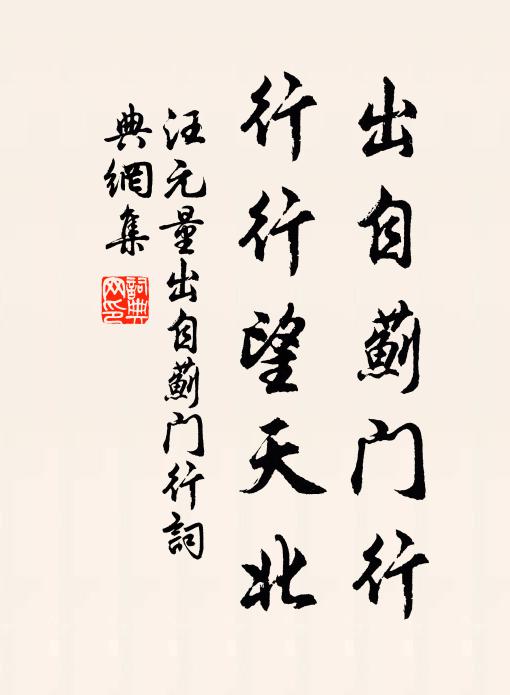 出自薊门行
行行望天北
汪元量出自薊门行詞
典網集
詞典网印